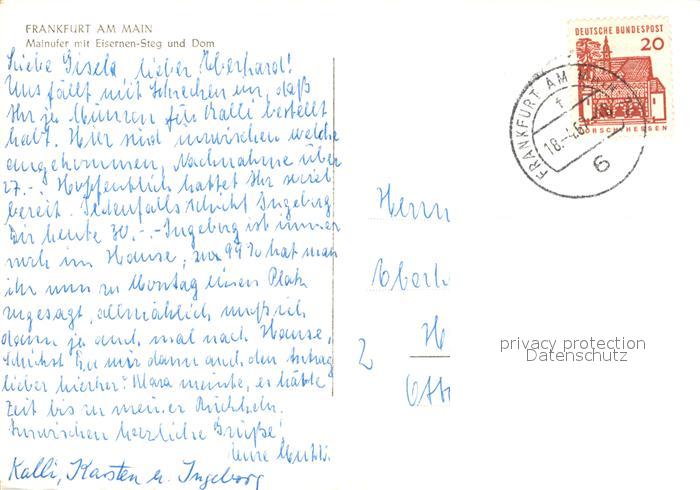 FRANKFURT AM MAIN
Mainufer mit Eisernen-Steg und Dom
Liebe Gisela, lieber Eberhard!
Uns fällt mit Schrecken ein, daß
Ihr ja Münzen für Kalli bestellt
habt. Hier sind inzwischen welche
angekommen, Nachnahme über
27.-. Hoffentlich hattet Ihr soviel
bereit. Jedenfalls schickt Ingeborg
Dir heute 30.-.- Ingeborg ist immer
noch im Hause, zu 99% hat man
ihr nun zu Montag einen Platz
zugesagt, allmählich muß ich
dann ja auch mal nach Hause.
Schickst Du mir dann auch den Antrag
lieber hierher? Klara meinte, es hätte
Zeit bis zu meiner Rückkehr.
Inzwischen herzliche Grüße!
Eure Mutti.
Kalli, Karsten u. Ingeborg
DEUTSCHE BUNDESPOST
20
LORSCH/HESSEN
FRANKFURT AM MAIN
6
Herrn
2
privacy protection
Datenschutz